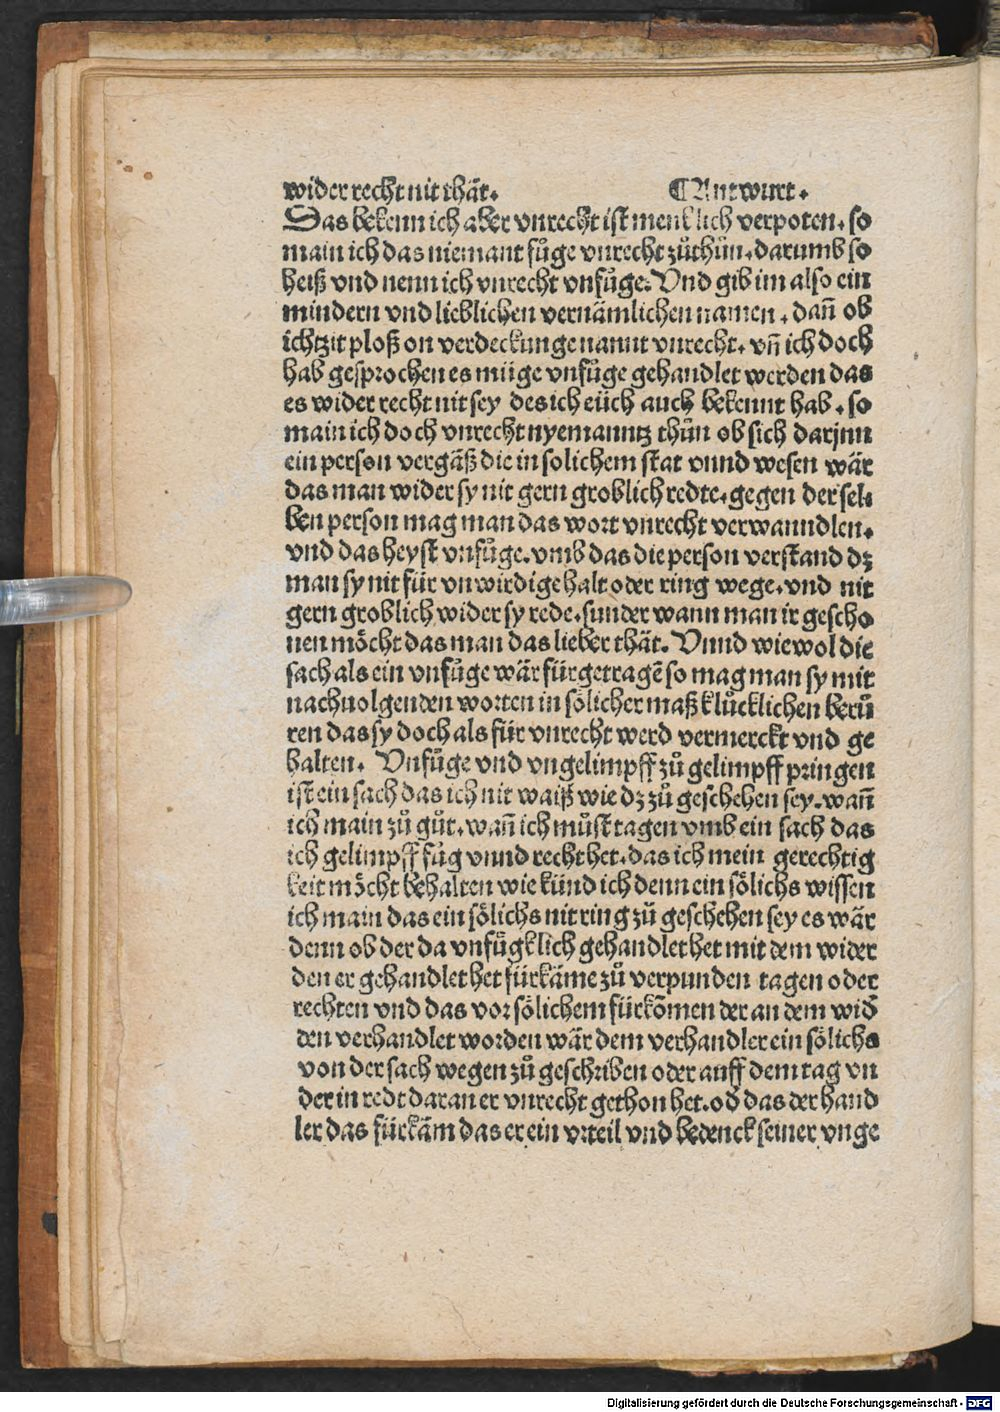 wider recht nit thät. ¶Antwurt.
Das bekenn ich aber vnrecht ist menklich verpoten. so
main ich das niemant fůge vnrecht zůthůn. darumb so
heiß vnd nenn ich vnrecht vnfůge. Vnd gib im also ein
mindern vnd lieblichen vernämlichen namen. dañ ob
ichtzit ploß on verdeckunge nannt vnrecht. vñ ich doch
hab gesprochen es müge vnfůge gehandlet werden das
es wider recht nit sey des ich eüch auch bekennt hab. so
main ich doch vnrecht nyemanntz thůn ob sich darjnn
ein person vergäß die in solichem stat vnnd wesen wär
das man wider sy nit gern groblich redte. gegen der sel⸗
ben person mag man das wort vnrecht verwanndlen.
vnd das heyst vnfůge. vmb das die person verstand dz
man sy nit für vnwirdige halt oder ring wege. vnd nit
gern groblich wider sy rede. sunder wann man ir gescho
nen möcht das man das lieber thät. Vnnd wiewol die
sach als ein vnfůge wär fürgetragē so mag man sy mit
nachuolgenden worten in sölicher maß klůcklichen berů
ren das sy doch als für vnrecht werd vermerckt vnd ge
halten. Vnfůge vnd vngelimpff zů gelimpff pringen
ist ein sach das ich nit waiß wie dz zů geschehen sey. wañ
ich main zů gůt. wañ ich můst tagen vmb ein sach das
ich gelimpff fůg vnnd recht het. das ich mein gerechtig
keit möcht behalten wie künd ich denn ein sölichs wissen
ich main das ein sölichs nit ring zů geschehen sey es wär
denn ob der da vnfůgklich gehandlet het mit dem wider
den er gehandlet het fürkäme zů verpunden tagen oder
rechten vnd das vor sölichem fürkōmen der an dem wid̄
den verhandlet worden wär dem verhandler ein sölichs
von der sach wegen zů geschriben oder auff dem tag vn
der in redt daran er vnrecht gethon het. od̄ das der hand
ler das fürkäm das er ein vrteil vnd bedenck seiner vnge
Digitalisierung gefördert durch die Deutsche Forschungsgemeinschaft - DFG